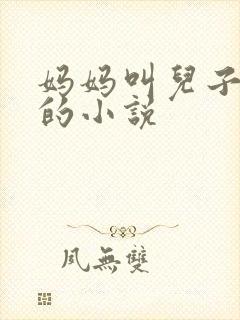 妈妈叫兒子
的小説
凤無雙